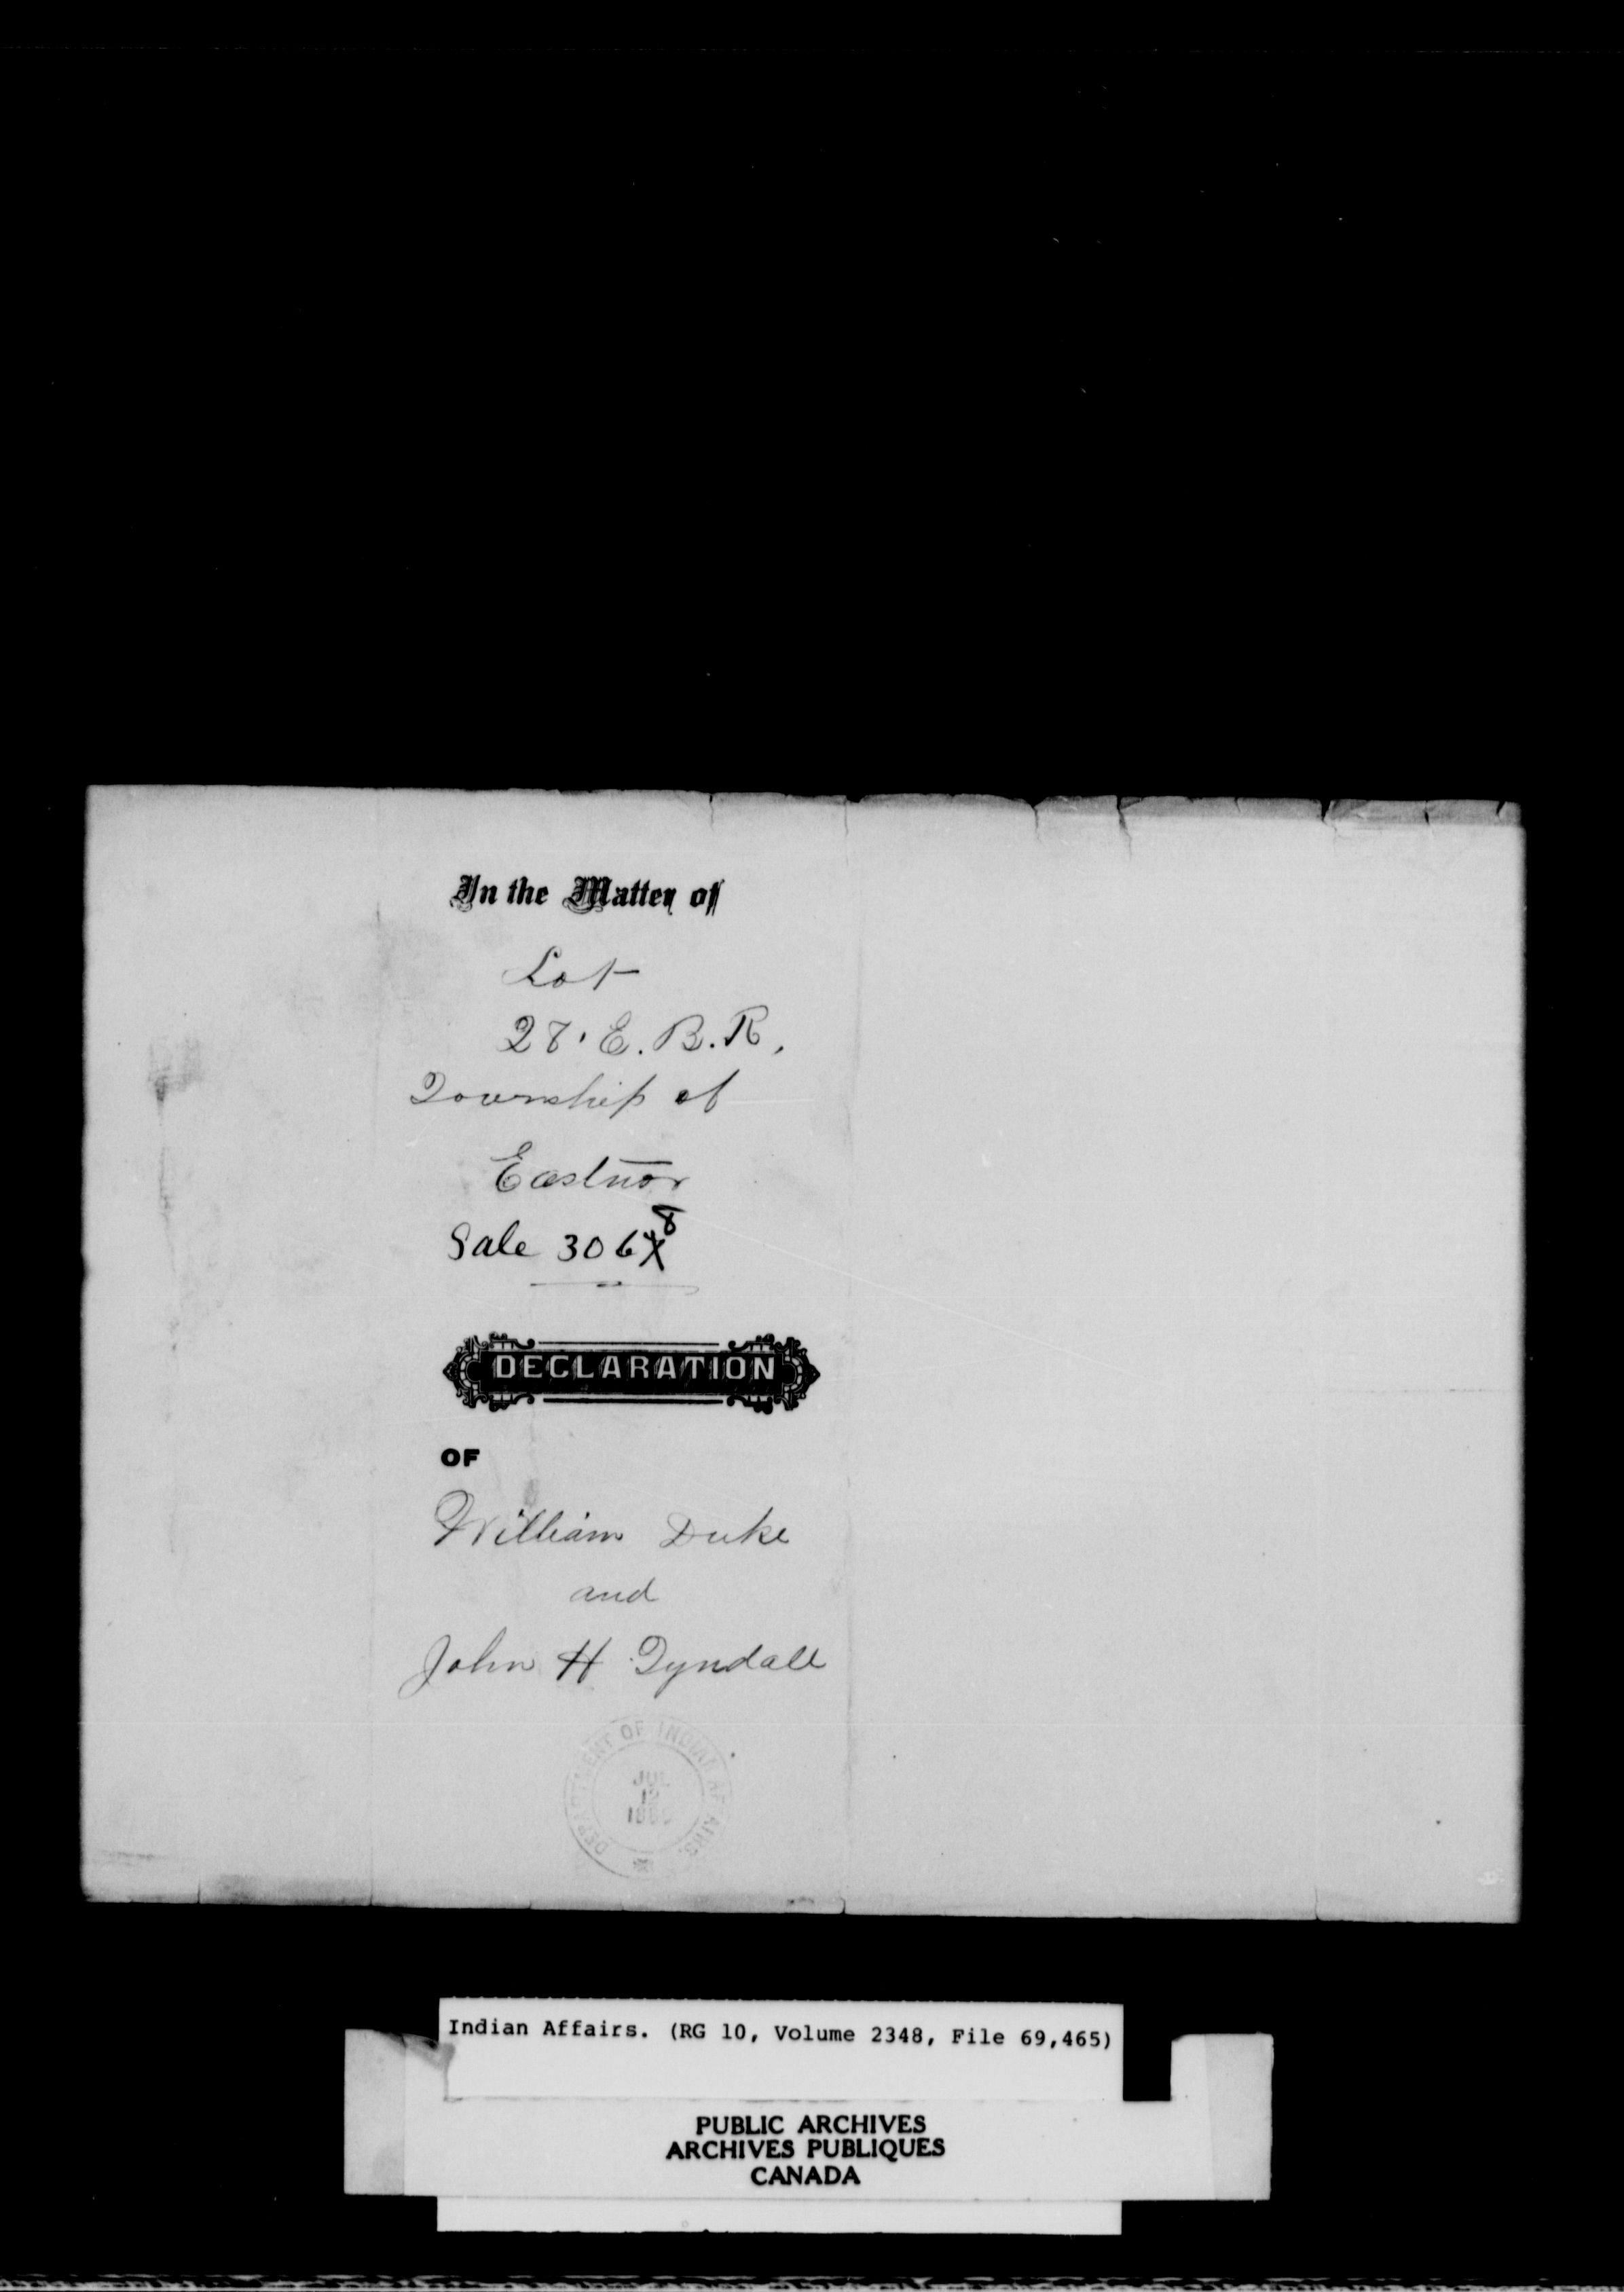 In the Matter of
Lot
28. E. B. R.
Township of
Eastnor
Sale 306 8
DECLARATION
OF
William Duke
and
John H Tyndall
DEPARTMENT OF INDIAN AFFAIRS.
JUL
Indian Affairs. (RG 10, Volume 2348, File 69,465)
PUBLIC ARCHIVES
ARCHIVES PUBLIQUES
CANADA